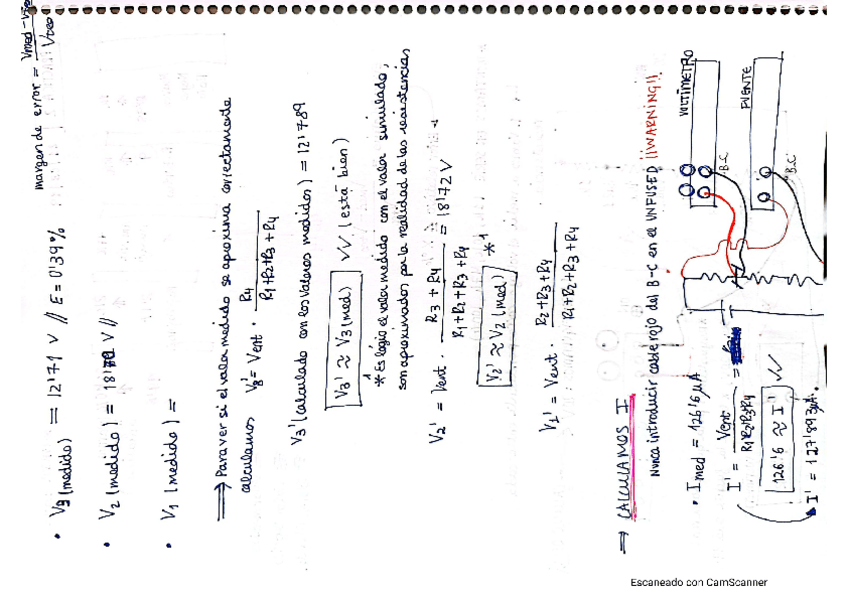 margen de error = Vmed - Vteo / Vteo
• V3 (medido) = 12'71 V // E = 0'39%
• V2 (medido) = 18'72 V //
• V1 (medido) =
⟹ Para ver si el valor medido se aproxima correctamente
calculamos V3' = Vent · R4 / R1+R2+R3+R4
V3' (calculado con los valores medidos) = 12'789
V3' ≈ V3 (med) ✓✓ (está bien)
* Es lógico el valor medido con el valor simulado,
son aproximados por la realidad de las resistencias
V2' = Vent · R3 + R4 / R1+R2+R3+R4 = 18'72 V
V2' ≈ V2 (med) *1
V1' = Vent · R2+R3+R4 / R1+R2+R3+R4
→ CALCULAMOS I
Nunca introducir cable rojo del B-C en el UNFUSED ¡¡WARNING!!
• Imed = 126'6 μA
I' = Vent / R1+R2+R3+R4 =
126'6 ≈ I' ✓✓
I' = 127'893 μA.
VOLTÍMETRO
B.C
FUENTE
B.C
Escaneado con CamScanner